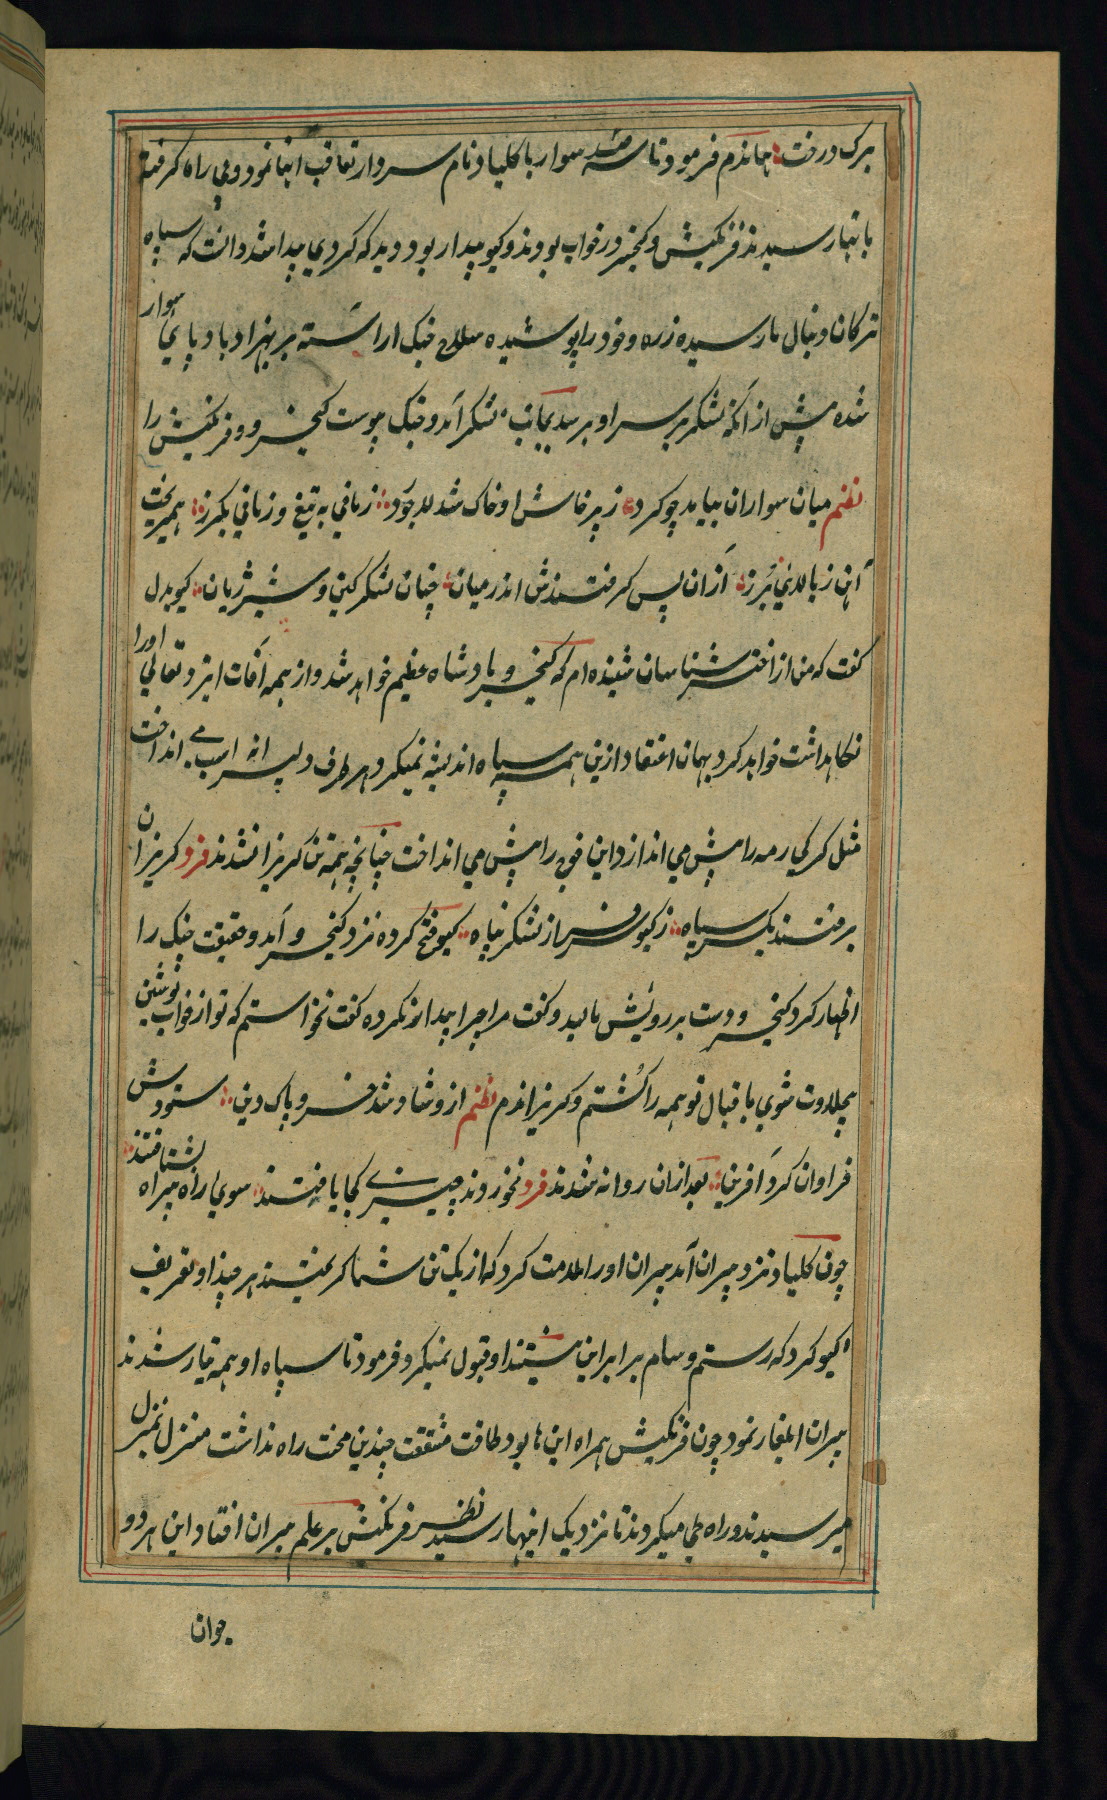 برک درخت هماندم فرمود تا سه صد سوار با کلباد نام سردار تعاقب اینا نمود و پی راه کرفته
باینها رسیدند فرنکیش و کیخسرو در خواب بودند و کیو بیدار بود دید که کردی پیدا شد دانست که سپاه
ترکان دنبال ما رسیده زره و خود را پوشیده سلاح جنک اراسته بر بهزاد باد پای سوار
شده پیش از انکه لشکر بر سر او برسد بجانب لشکر آمد و جنک پیوست کیخسرو و فرنکیش را
نظم میان سواران بیامد چو کرد ز پرخاش او خاک شد لاجورد زمانی به تیغ و زمانی بکرز همیریخت
آهن ز بالای برز ازان پس کرفتندش اندر میان چنان لشکر کشن و شیر ژیان کیو بدل
کفت که من از اختر شناسان شنیده ام که کیخسرو پادشاه عظیم خواهد شد و از همه آفات ایزد تعالی اورا
نکاهداشت خواهد کرد بهمان اعتقاد ازین همه سپاه اندیشه نمیکرد هر طرف دلیرانه اسپ می انداخت
مثل کرکی رمه را پیش می اندازد این فوج را پیش می انداخت چنانچه همه تن کریزان شدند فرد کریزان
برفتند یکسر سپاه ز کیو سرافراز لشکر پناه کیو فتح کرده نزد کیخسرو آمد و حقیقت جنک را
اظهار کرد کیخسرو دست بر رویش مالید و کفت مرا چرا بیدار نکرده کفت نخواستم که تو از خواب نوشین
بیحلاوت شوی باقبال تو همه را کشتم و کریزاندم نظم ازو شاد شد خسرو پاک دین ستودش
فراوان کرد آفرین بعد ازان روانه شدند فرد نخوردند چیزی کجا یافتند سوی راه بیراه بشتافتند
چون کلباد نزد پیران آمد پیران اورا ملامت کرد که از یک تن شما کریختند هر چند او تعریف
کیو کرد که رستم و سام برابر این نیستند او قبول نمیکرد فرمود تا سپاه او همه تیار شدند
پیران ایلغار نمود چون فرنکیش همراه این ها بود طاقت مشقت چندین محنت راه نداشت منزل بمنزل
میرسیدند و راه طی میکردند تا نزدیک اینها رسید نظر فرنکیش بر علم پیران افتاد این هر دو
جوان